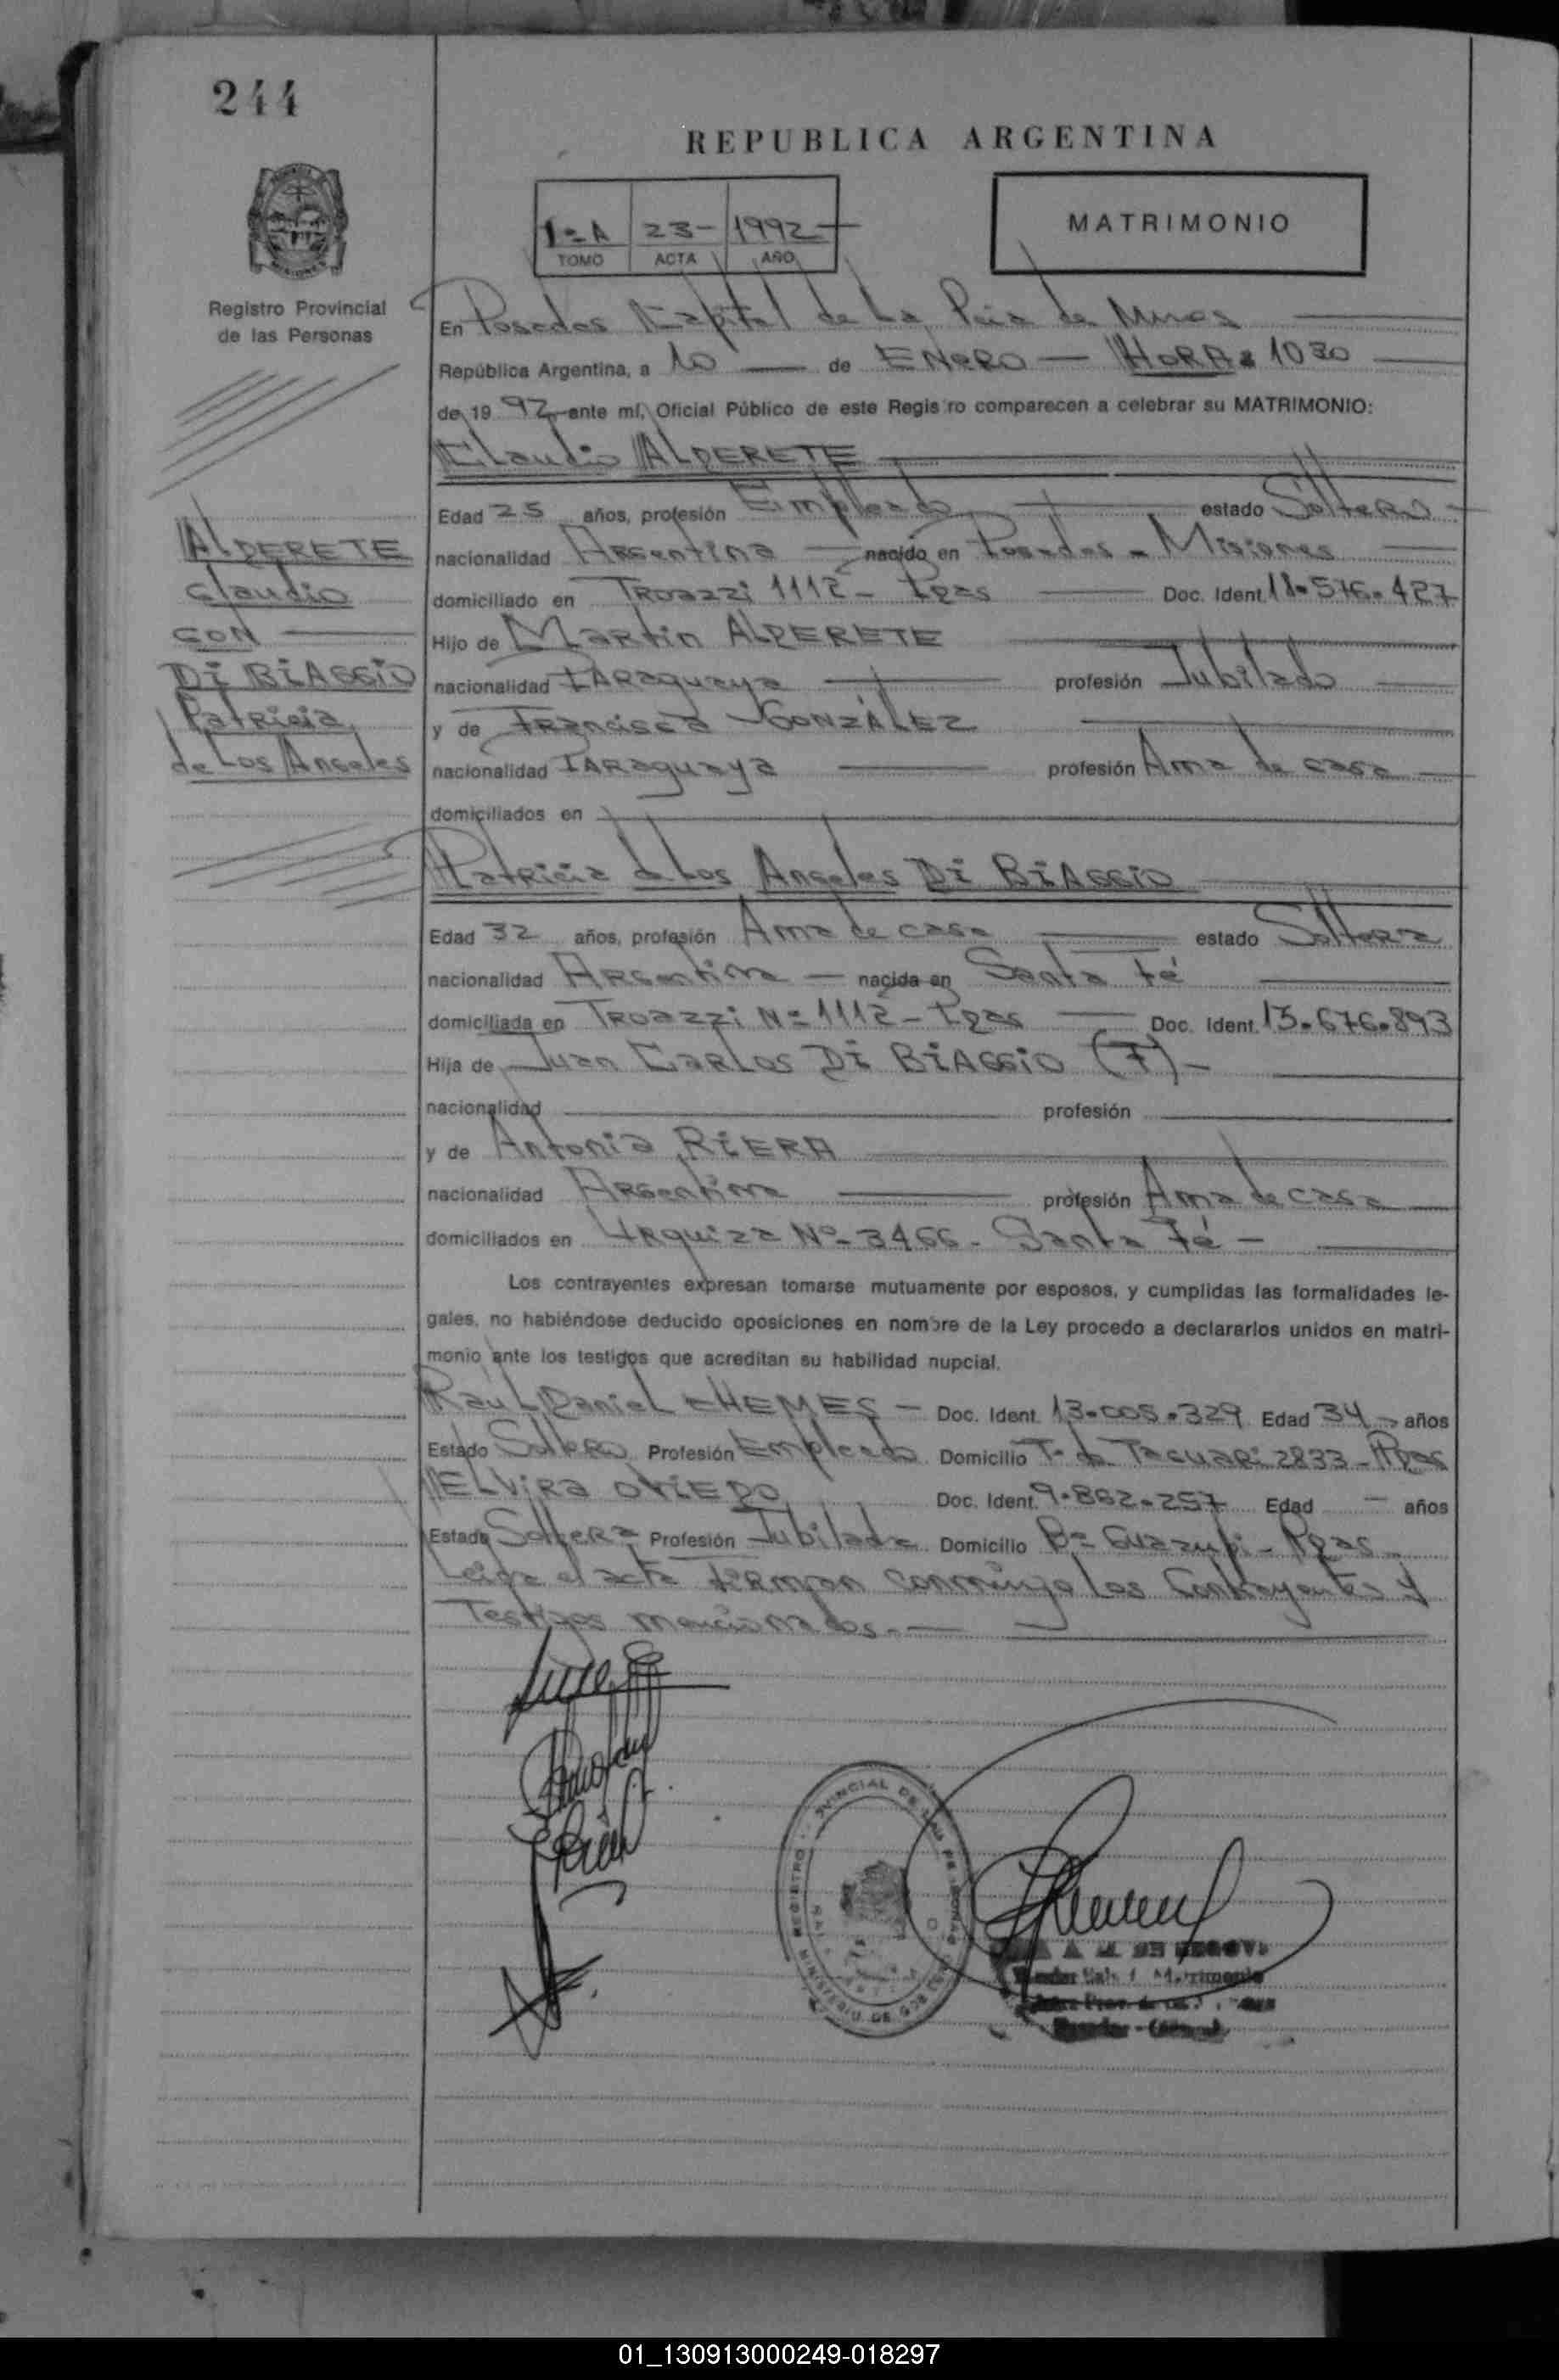 244
REPUBLICA ARGENTINA
1º A 23- 1992
TOMO ACTA AÑO
MATRIMONIO
Registro Provincial
de las Personas
En Posadas Capital de La Pcia de Mnes
República Argentina, a 10 de ENERO HORA: 1030
de 19 92 ante mí, Oficial Público de este Regis ro comparecen a celebrar su MATRIMONIO:
Claudio ALDERETE
Edad 25 años, profesión Empleado estado Soltero
nacionalidad Argentina nacido en Posadas - Misiones
domiciliado en Troazzi 1112 - Pdas Doc. Ident. 18.576.427
Hijo de Martin ALDERETE
nacionalidad Paraguaya profesión Jubilado
y de Francisca GONZÁLEZ
nacionalidad Paraguaya profesión Ama de casa
domiciliados en
ALDERETE
Claudio
CON
DI BIAGGIO
Patricia
de Los Angeles
Patricia de Los Angeles DI BIAGGIO
Edad 32 años, profesión Ama de casa estado Soltera
nacionalidad Argentina nacida en Santa Fé
domiciliada en Troazzi Nº 1112 - Pdas Doc. Ident. 13.676.893
Hija de Juan Carlos DI BIAGGIO (F)
nacionalidad profesión
y de Antonia RIERA
nacionalidad Argentina profesión Ama de casa
domiciliados en Urquiza Nº 3466 - Santa Fé -
Los contrayentes expresan tomarse mutuamente por esposos, y cumplidas las formalidades le-
gales, no habiéndose deducido oposiciones en nombre de la Ley procedo a declararlos unidos en matri-
monio ante los testigos que acreditan su habilidad nupcial.
Raul Daniel CHEMES - Doc. Ident. 13.005.329 Edad 34 años
Estado Soltero Profesión Empleado Domicilio T. de Tacuari 2833 - Pdas
ELVIRA OVIEDO Doc. Ident. 9.862.257 Edad - años
Estado Soltera Profesión Jubilada Domicilio Bº Guazupi - Pdas
Leida el acta firman conmigo los Contrayentes y
Testigos mencionados.-
01_130913000249-018297